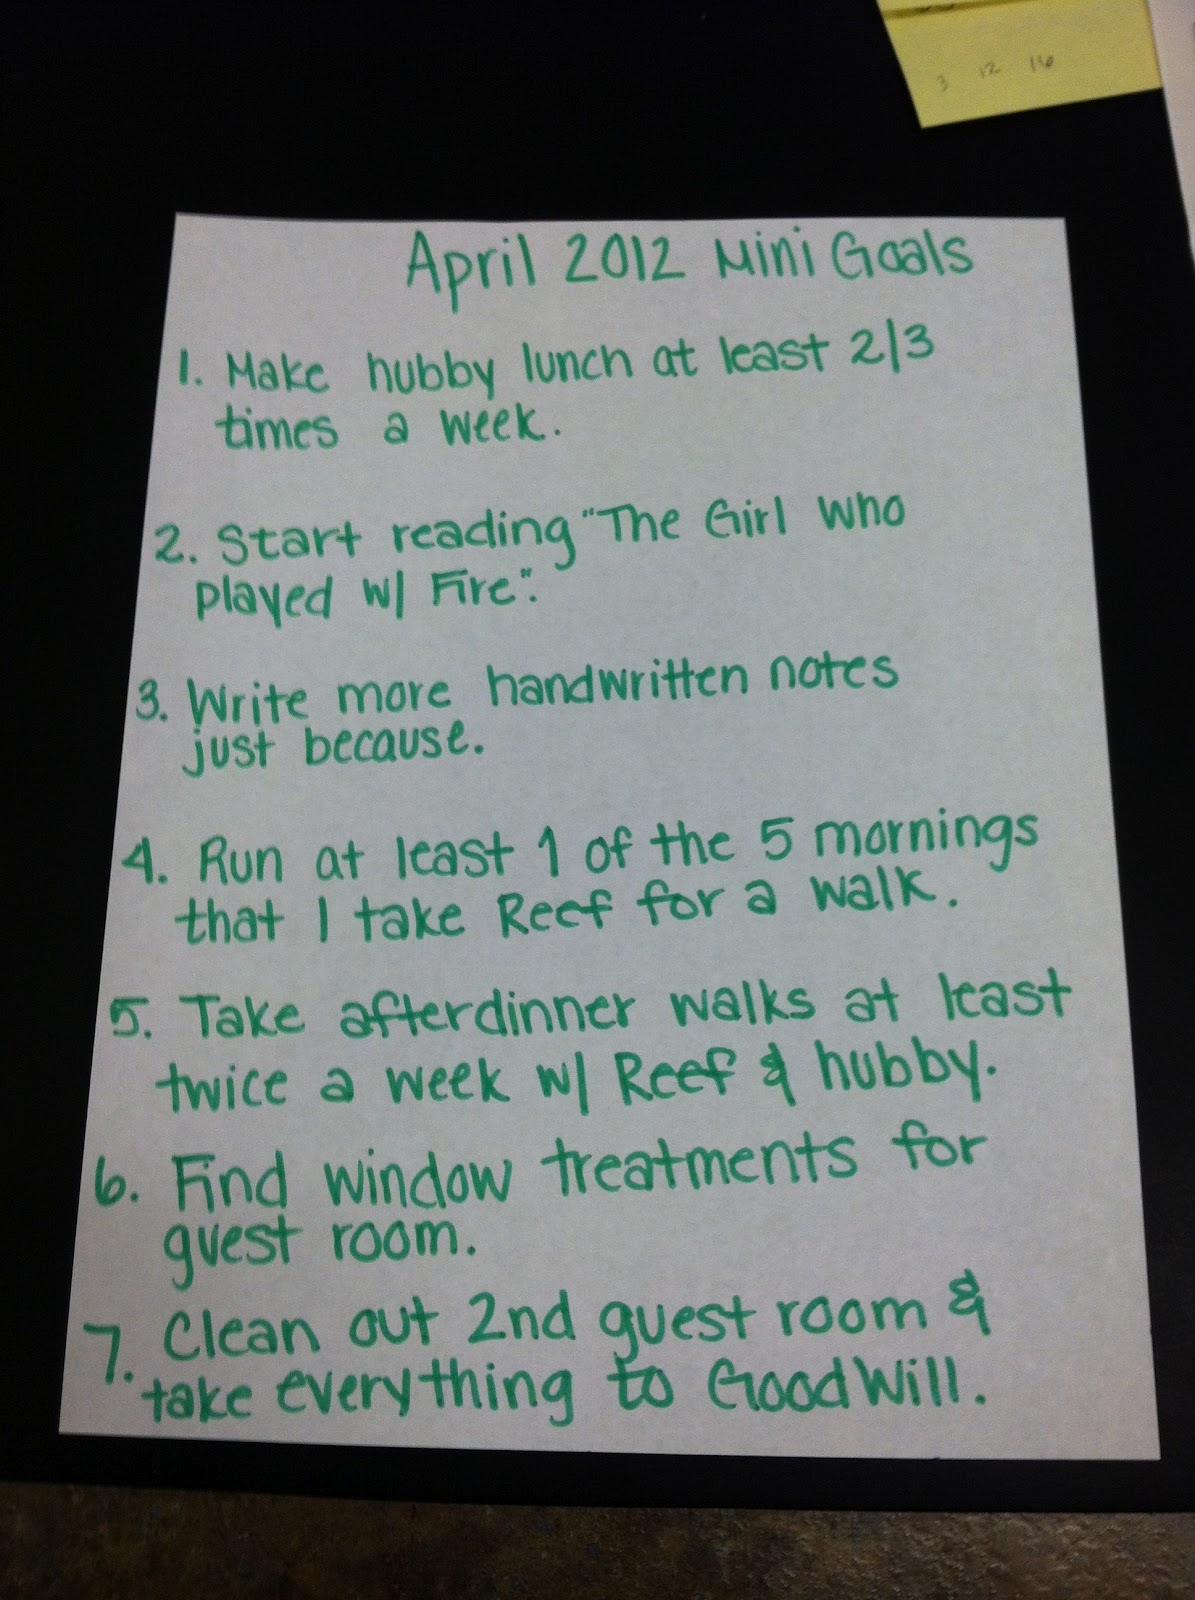 3 12 16
April 2012 Mini Goals
1. Make hubby lunch at least 2/3
times a week.
2. Start reading "The Girl who
played w/ Fire".
3. Write more handwritten notes
just because.
4. Run at least 1 of the 5 mornings
that I take Reef for a walk.
5. Take afterdinner walks at least
twice a week w/ Reef & hubby.
6. Find window treatments for
guest room.
7. Clean out 2nd guest room &
take everything to GoodWill.